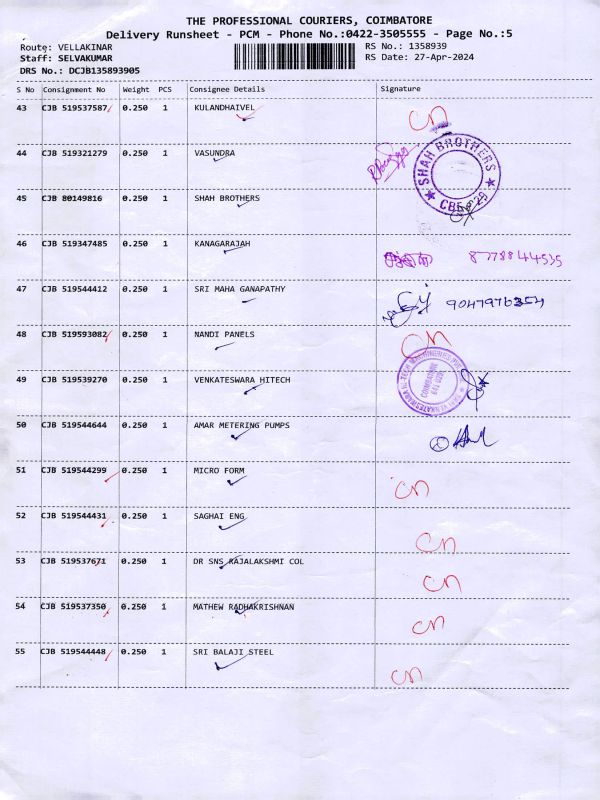 THE PROFESSIONAL COURIERS, COIMBATORE
Delivery Runsheet - PCM - Phone No.:0422-3505555 - Page No.:5
Route: VELLAKINAR RS No.: 1358939
Staff: SELVAKUMAR RS Date: 27-Apr-2024
DRS No.: DCJB135893905
S No Consignment No Weight PCS Consignee Details Signature
43 CJB 519537587 0.250 1 KULANDHAIVEL CN
44 CJB 519321279 0.250 1 VASUNDRA
SHAH BROTHERS
CBE - 29
45 CJB 80149816 0.250 1 SHAH BROTHERS
46 CJB 519347485 0.250 1 KANAGARAJAH 8778844535
47 CJB 519544412 0.250 1 SRI MAHA GANAPATHY 9047976354
48 CJB 519593082 0.250 1 NANDI PANELS CN
49 CJB 519539270 0.250 1 VENKATESWARA HITECH
SRI VENKATESWARA HI-TECH MACHINERIES PVT LTD
COIMBATORE
641 029
50 CJB 519544644 0.250 1 AMAR METERING PUMPS
51 CJB 519544299 0.250 1 MICRO FORM CN
52 CJB 519544431 0.250 1 SAGHAI ENG CN
53 CJB 519537671 0.250 1 DR SNS RAJALAKSHMI COL CN
54 CJB 519537350 0.250 1 MATHEW RADHAKRISHNAN CN
55 CJB 519544448 0.250 1 SRI BALAJI STEEL CN